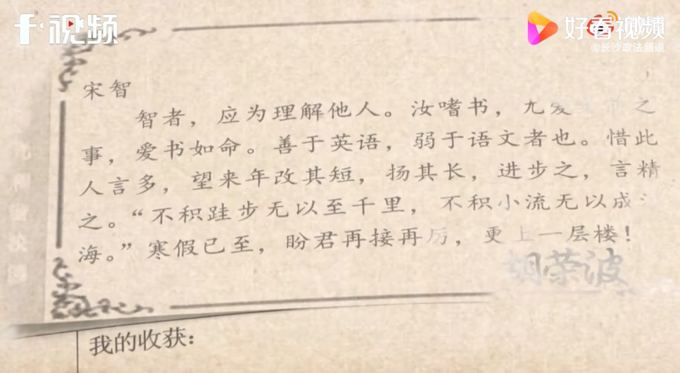 千视频
好看视频
@长沙政法频道
宋智
智者，应为理解他人。汝嗜书，尤爱之
事，爱书如命。善于英语，弱于语文者也。惜此
人言多，望来年改其短，扬其长，进步之，言精
之。“不积跬步无以至千里，不积小流无以成
海。”寒假已至，盼君再接再厉，更上一层楼！
胡荣波
我的收获：